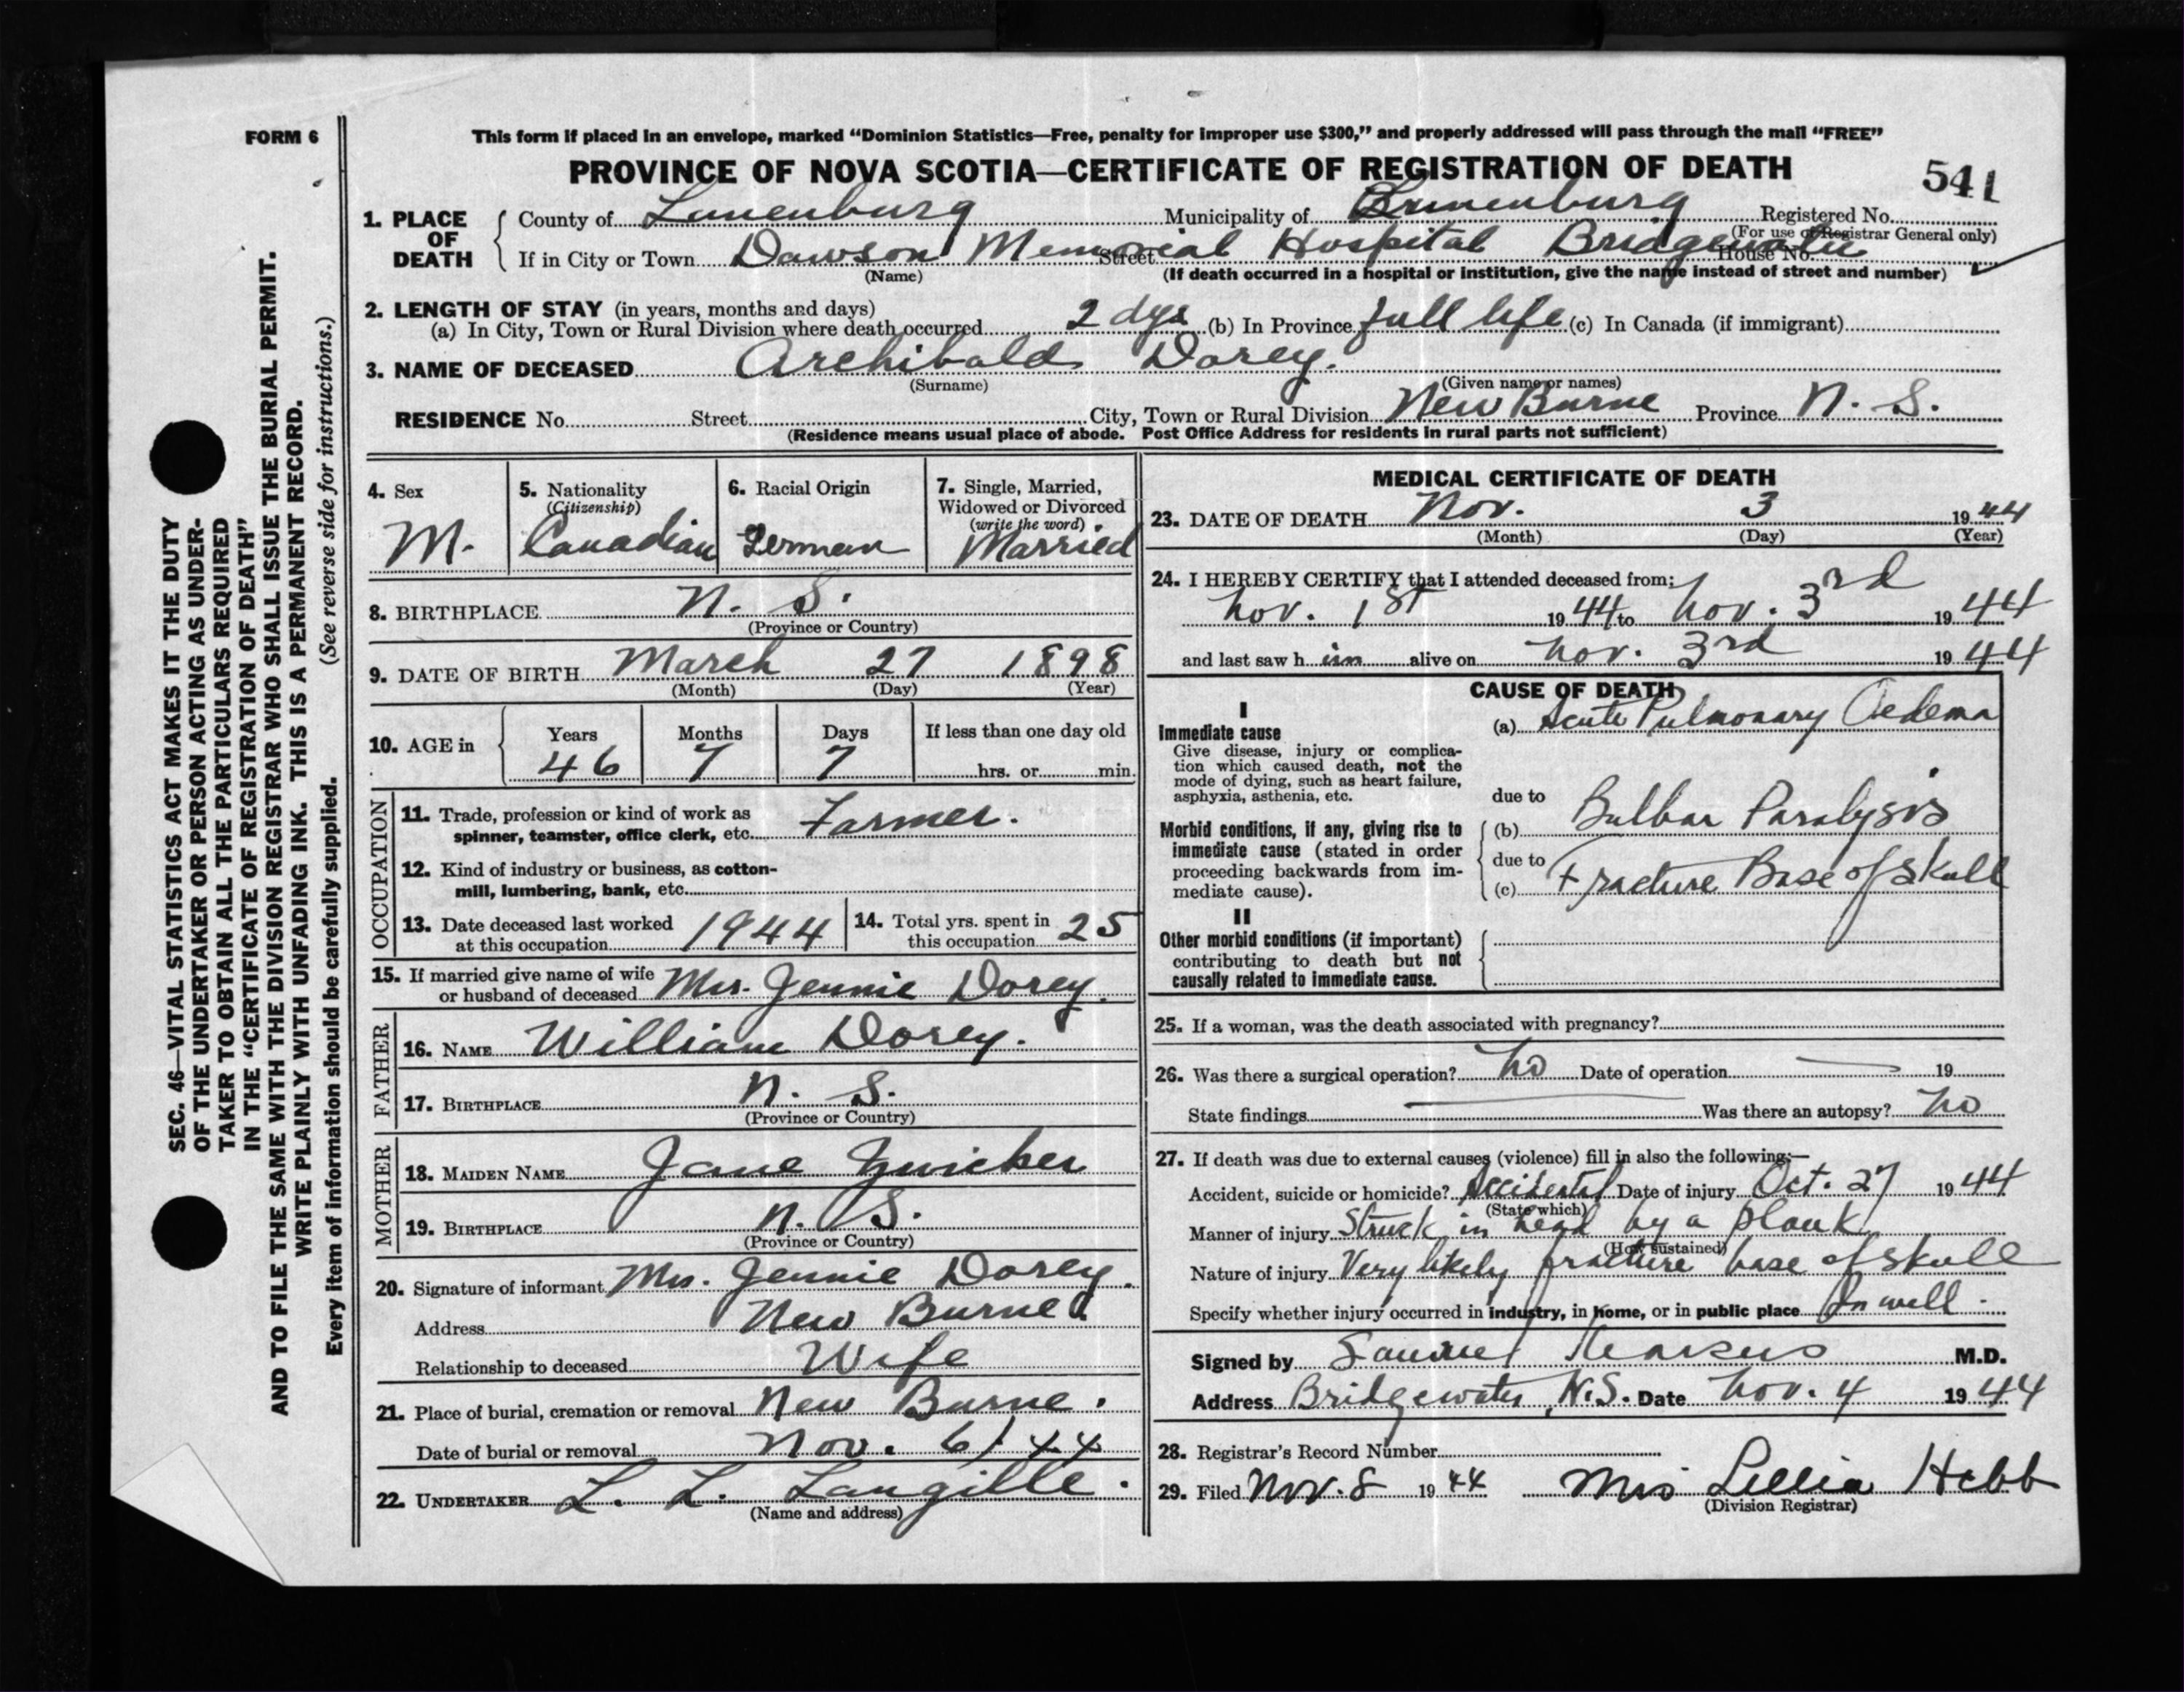 FORM 6
This form if placed in an envelope, marked “Dominion Statistics—Free, penalty for improper use $300,” and properly addressed will pass through the mail “FREE”
PROVINCE OF NOVA SCOTIA—CERTIFICATE OF REGISTRATION OF DEATH
541
1. PLACE OF DEATH
County of Lunenburg Municipality of Lunenburg Registered No.
(For use of Registrar General only)
If in City or Town Dawson Memorial Hospital Bridgewater Street House No.
(Name) (If death occurred in a hospital or institution, give the name instead of street and number)
2. LENGTH OF STAY (in years, months and days)
(a) In City, Town or Rural Division where death occurred 2 dys (b) In Province full life (c) In Canada (if immigrant)
3. NAME OF DECEASED Archibald Dorey.
(Surname) (Given name or names)
RESIDENCE No. Street City, Town or Rural Division New Burne Province N. S.
(Residence means usual place of abode. Post Office Address for residents in rural parts not sufficient)
4. Sex
M.
5. Nationality
(Citizenship)
Canadian
6. Racial Origin
German
7. Single, Married,
Widowed or Divorced
(write the word)
Married
8. BIRTHPLACE N. S.
(Province or Country)
9. DATE OF BIRTH March 27 1898
(Month) (Day) (Year)
10. AGE in
Years Months Days If less than one day old
46 7 7 hrs. or min.
OCCUPATION
11. Trade, profession or kind of work as
spinner, teamster, office clerk, etc. Farmer.
12. Kind of industry or business, as cotton-
mill, lumbering, bank, etc.
13. Date deceased last worked
at this occupation 1944
14. Total yrs. spent in
this occupation 25
15. If married give name of wife
or husband of deceased Mrs. Jennie Dorey.
FATHER
16. NAME William Dorey.
17. BIRTHPLACE N. S.
(Province or Country)
MOTHER
18. MAIDEN NAME Jane Zwicker
19. BIRTHPLACE N. S.
(Province or Country)
20. Signature of informant Mrs. Jennie Dorey.
Address New Burne
Relationship to deceased Wife
21. Place of burial, cremation or removal New Burne.
Date of burial or removal Nov. 6/44
22. UNDERTAKER L. L. Langille.
(Name and address)
MEDICAL CERTIFICATE OF DEATH
23. DATE OF DEATH Nov. 3 1944
(Month) (Day) (Year)
24. I HEREBY CERTIFY that I attended deceased from:
Nov. 1st 1944 to Nov. 3rd 1944
and last saw him alive on Nov. 3rd 1944
CAUSE OF DEATH
I
Immediate cause
Give disease, injury or complica-
tion which caused death, not the
mode of dying, such as heart failure,
asphyxia, asthenia, etc.
(a) Acute Pulmonary Oedema
due to
Morbid conditions, if any, giving rise to
immediate cause (stated in order
proceeding backwards from im-
mediate cause).
(b) Bulbar Paralysis
due to
(c) Fracture Base of Skull
II
Other morbid conditions (if important)
contributing to death but not
causally related to immediate cause.
25. If a woman, was the death associated with pregnancy?
26. Was there a surgical operation? No Date of operation — 19
State findings — Was there an autopsy? No
27. If death was due to external causes (violence) fill in also the following:—
Accident, suicide or homicide? Accidental Date of injury Oct. 27 1944
(State which)
Manner of injury Struck in head by a plank
(How sustained)
Nature of injury Very likely fracture base of skull
Specify whether injury occurred in industry, in home, or in public place In well.
Signed by Samuel Marcus M.D.
Address Bridgewater, N.S. Date Nov. 4 1944
28. Registrar's Record Number
29. Filed Nov. 8 1944 Mrs Lellia Hebb
(Division Registrar)
SEC. 46—VITAL STATISTICS ACT MAKES IT THE DUTY
OF THE UNDERTAKER OR PERSON ACTING AS UNDER-
TAKER TO OBTAIN ALL THE PARTICULARS REQUIRED
IN THE “CERTIFICATE OF REGISTRATION OF DEATH”
AND TO FILE THE SAME WITH THE DIVISION REGISTRAR WHO SHALL ISSUE THE BURIAL PERMIT.
WRITE PLAINLY WITH UNFADING INK. THIS IS A PERMANENT RECORD.
Every item of information should be carefully supplied. (See reverse side for instructions.)